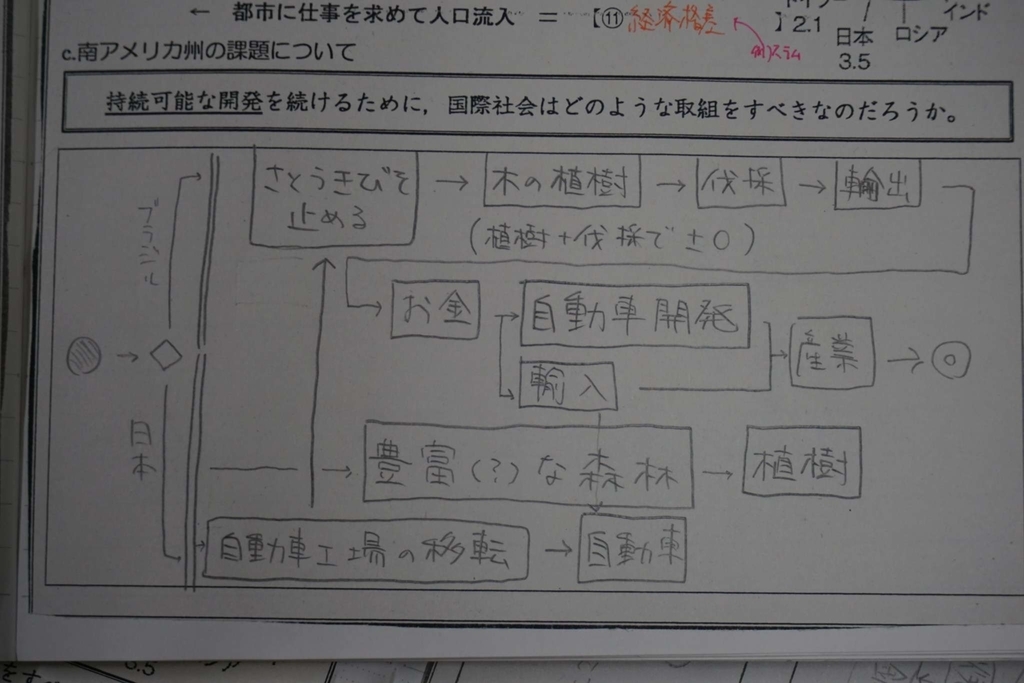 ← 都市に仕事を求めて人口流入 = 【⑪経済格差 】2.1
例)スラム
日本
3.5
ロシア
インド
c.南アメリカ州の課題について
持続可能な開発を続けるために，国際社会はどのような取組をすべきなのだろうか。
ブラジル
さとうきびそ
止める
→ 木の植樹 → 伐採 → 輸出
(植樹+伐採で±0)
お金 → 自動車開発
輸入
産業
日本
→ 豊富(?)な森林 → 植樹
自動車工場の移転 → 自動車